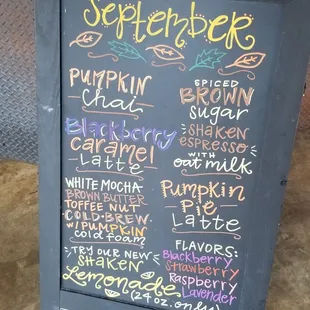 September
PUMPKIN
Chai
Blackberry
CARAMEL
Latte
WHITE MOCHA
BROWN BUTTER
TOFFEE NUT
COLD-BREW
W/PUMPKIN
cold foam
TRY OUR NEW
SHAKEN
Lemonade
(24oz. only)
SPICED
BROWN
Sugar
SHAKEN
espresso
WITH
oat milk
Pumpkin
Pie
Latte
FLAVORS:
Blackberry
Strawberry
Raspberry
Lavender